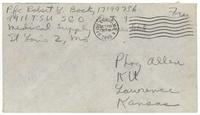 Pfc Robert V. Bock, 17199756
1911 T.S.U S.C.O
Medical Supply
St Louis 2, Mo
Free
Phog Allen
KU
Lawrence
Kansas